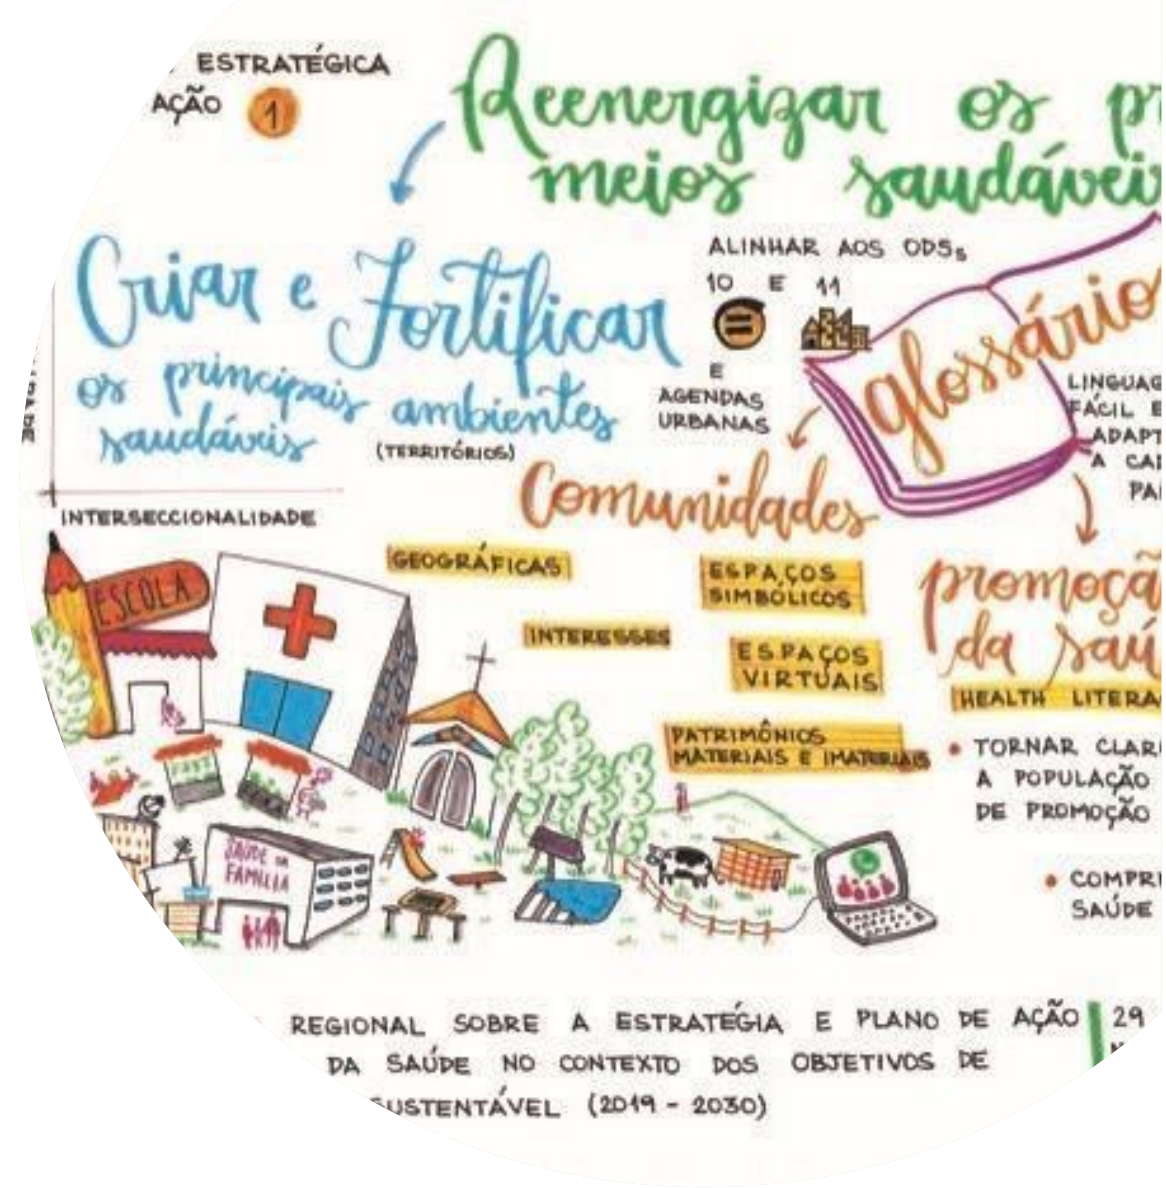 ESTRATÉGICA
AÇÃO 1
Reenergizar os
meios
Criar e Fortificar
os principais ambientes
saudáveis
(TERRITÓRIOS)
ALINHAR AOS ODSs
10 E 11
E
AGENDAS
URBANAS
glossário
FÁCIL E
INTERSECCIONALIDADE
Comunidades
GEOGRÁFICAS
INTERESSES
ESPAÇOS
SIMBÓLICOS
ESPAÇOS
VIRTUAIS
PATRIMÔNIOS
MATERIAIS E IMATERIAIS
da
HEALTH
TORNAR
A POPULAÇÃO
DE PROMOÇÃO
SAÚDE
ESCOLA
SAÚDE DA
FAMÍLIA
REGIONAL SOBRE A ESTRATÉGIA E PLANO DE AÇÃO
DA SAÚDE NO CONTEXTO DOS OBJETIVOS DE
SUSTENTÁVEL (2019 - 2030)
29